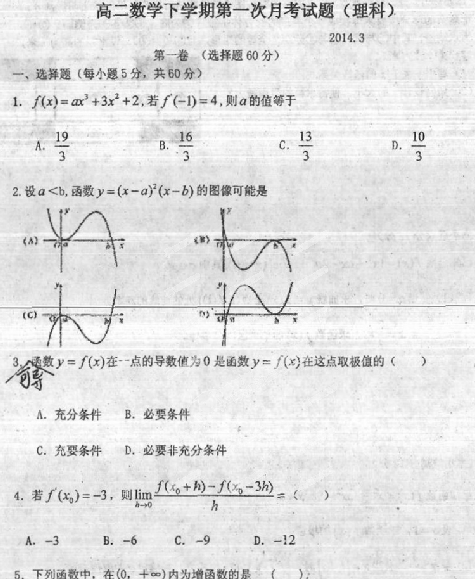 高二数学下学期第一次月考试题（理科）
2014.3
第一卷 （选择题 60 分）
一、选择题（每小题 5 分，共 60 分）
1. f(x)=ax³+3x²+2,若 f′(-1)=4,则 a 的值等于
A. 19/3 B. 16/3 C. 13/3 D. 10/3
2. 设 a<b,函数 y=(x-a)²(x-b) 的图像可能是
(A) y O a b x (B) y O a b x
(C) y O a b x (D) y O a b x
3. 函数 y=f(x)在一点的导数值为 0 是函数 y=f(x)在这点取极值的（ ）
可导
A. 充分条件 B. 必要条件
C. 充要条件 D. 必要非充分条件
4. 若 f′(x₀)=-3，则 lim h→0 f(x₀+h)-f(x₀-3h)/h =（ ）
A. -3 B. -6 C. -9 D. -12
5. 下列函数中，在(0，+∞)内为增函数的是 （ ）;